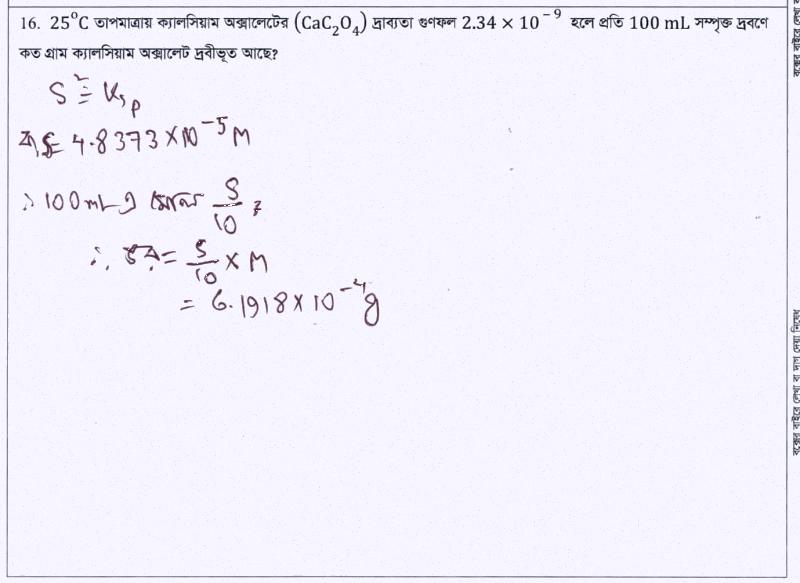 16. 25°C তাপমাত্রায় ক্যালসিয়াম অক্সালেটের (CaC₂O₄) দ্রাব্যতা গুণফল 2.34 × 10⁻⁹ হলে প্রতি 100 mL সম্পৃক্ত দ্রবণে
কত গ্রাম ক্যালসিয়াম অক্সালেট দ্রবীভূত আছে?
S² = Ksp
বা, S = 4.8373 × 10⁻⁵ M
∴ 100 mL এ মোল S/10
∴ ভর = S/10 × M
= 6.1918 × 10⁻⁴ g
বক্সের বাইরে লেখা বা দাগ দেয়া নিষেধ